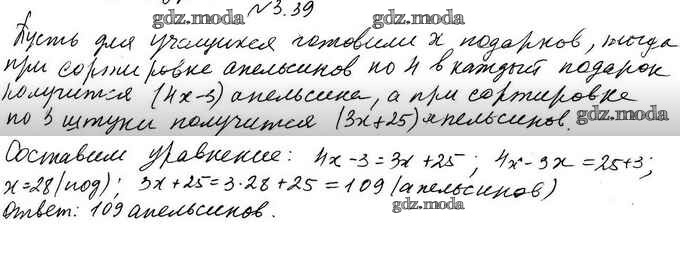 №3.39
gdz.moda
Пусть для учащихся готовили x подарков, тогда
при сортировке апельсинов по 4 в каждый подарок
получится (4x-3) апельсина, а при сортировке
gdz.moda
по 3 штуки получится (3x+25) апельсинов.
gdz.moda
Составим уравнение: 4x-3=3x+25; 4x-3x=25+3;
x=28(под); 3x+25=3·28+25=109(апельсинов)
Ответ: 109 апельсинов.
gdz.moda